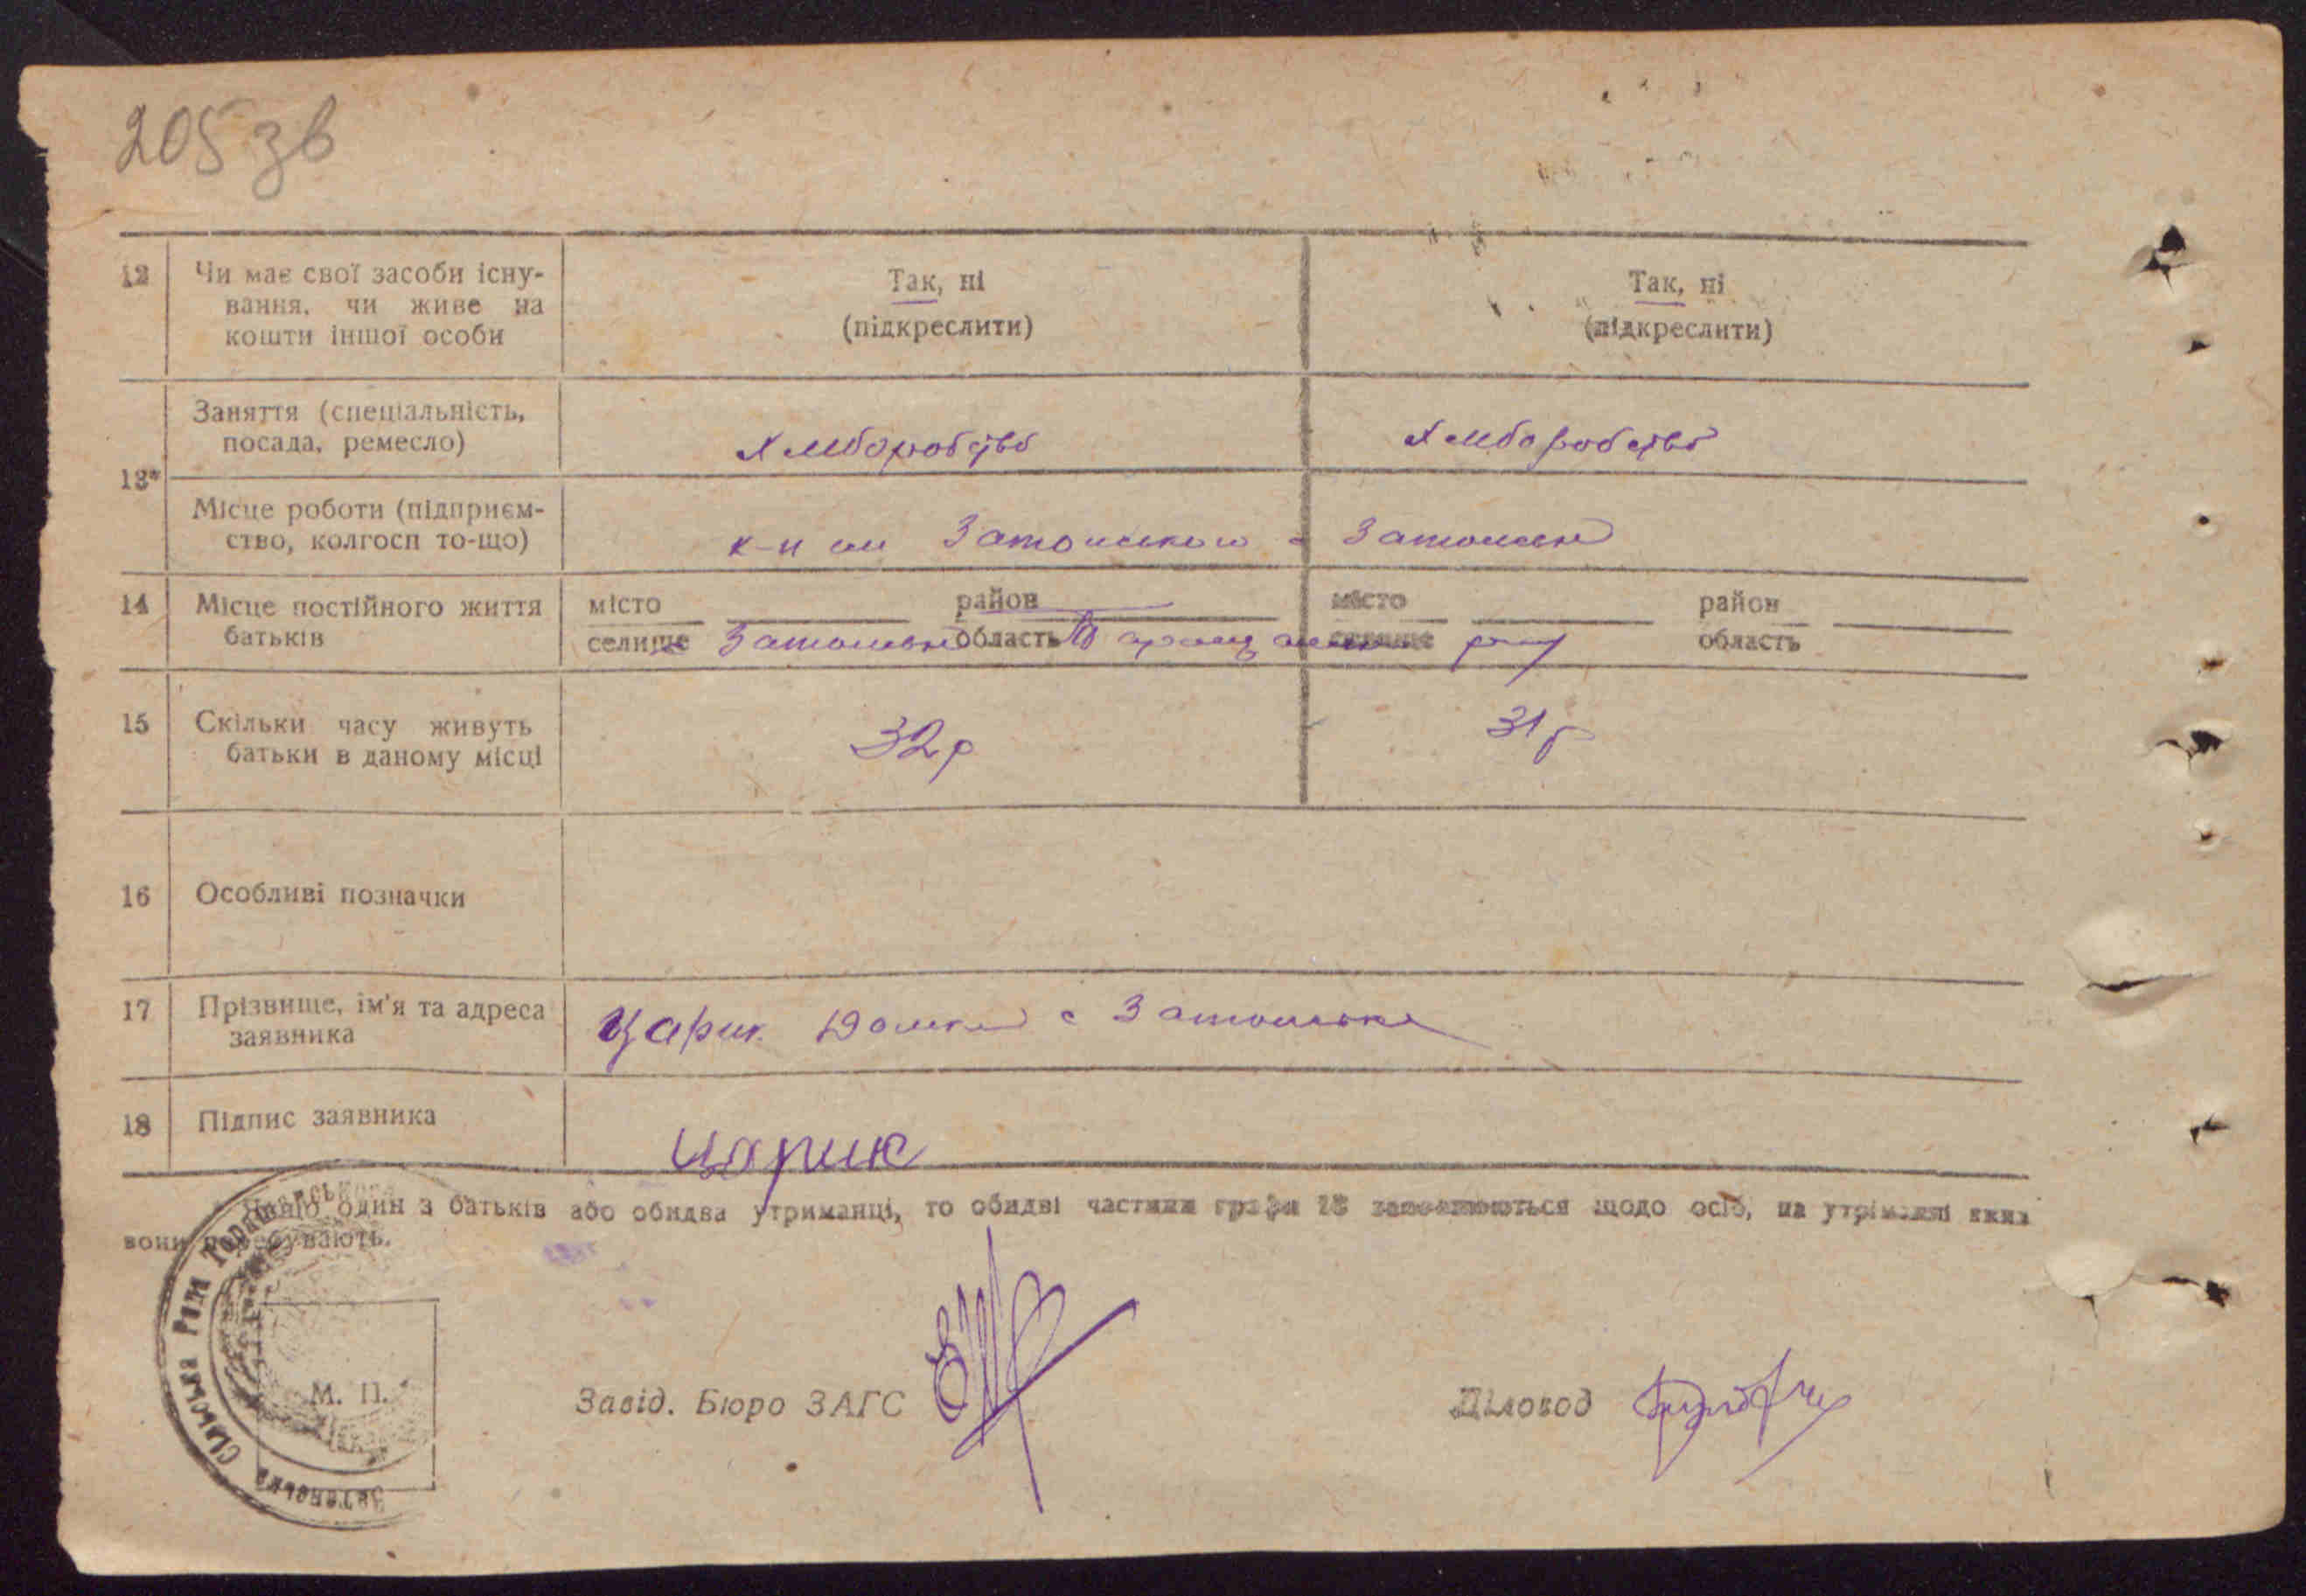 205 зв
12 Чи має свої засоби існу-
вання, чи живе на
кошти іншої особи
Так, ні
(підкреслити)
Так, ні
(підкреслити)
13*
Заняття (спеціальність,
посада, ремесло)
Хліборобство
Хліборобство
Місце роботи (підприєм-
ство, колгосп то-що)
14 Місце постійного життя
батьків
місто район
селище область
місто район
селище область
15 Скільки часу живуть
батьки в даному місці
32р
31р
16 Особливі позначки
17 Прізвище, ім'я та адреса
заявника
Царик с
18 Підпис заявника
Царик
Якщо один з батьків або обидва утриманці, то обидві частини графи 13 заповнюються щодо осіб, на утриманні яких
вони перебувають.
Сільська Рада
М. П.
Завід. Бюро ЗАГС
Діловод